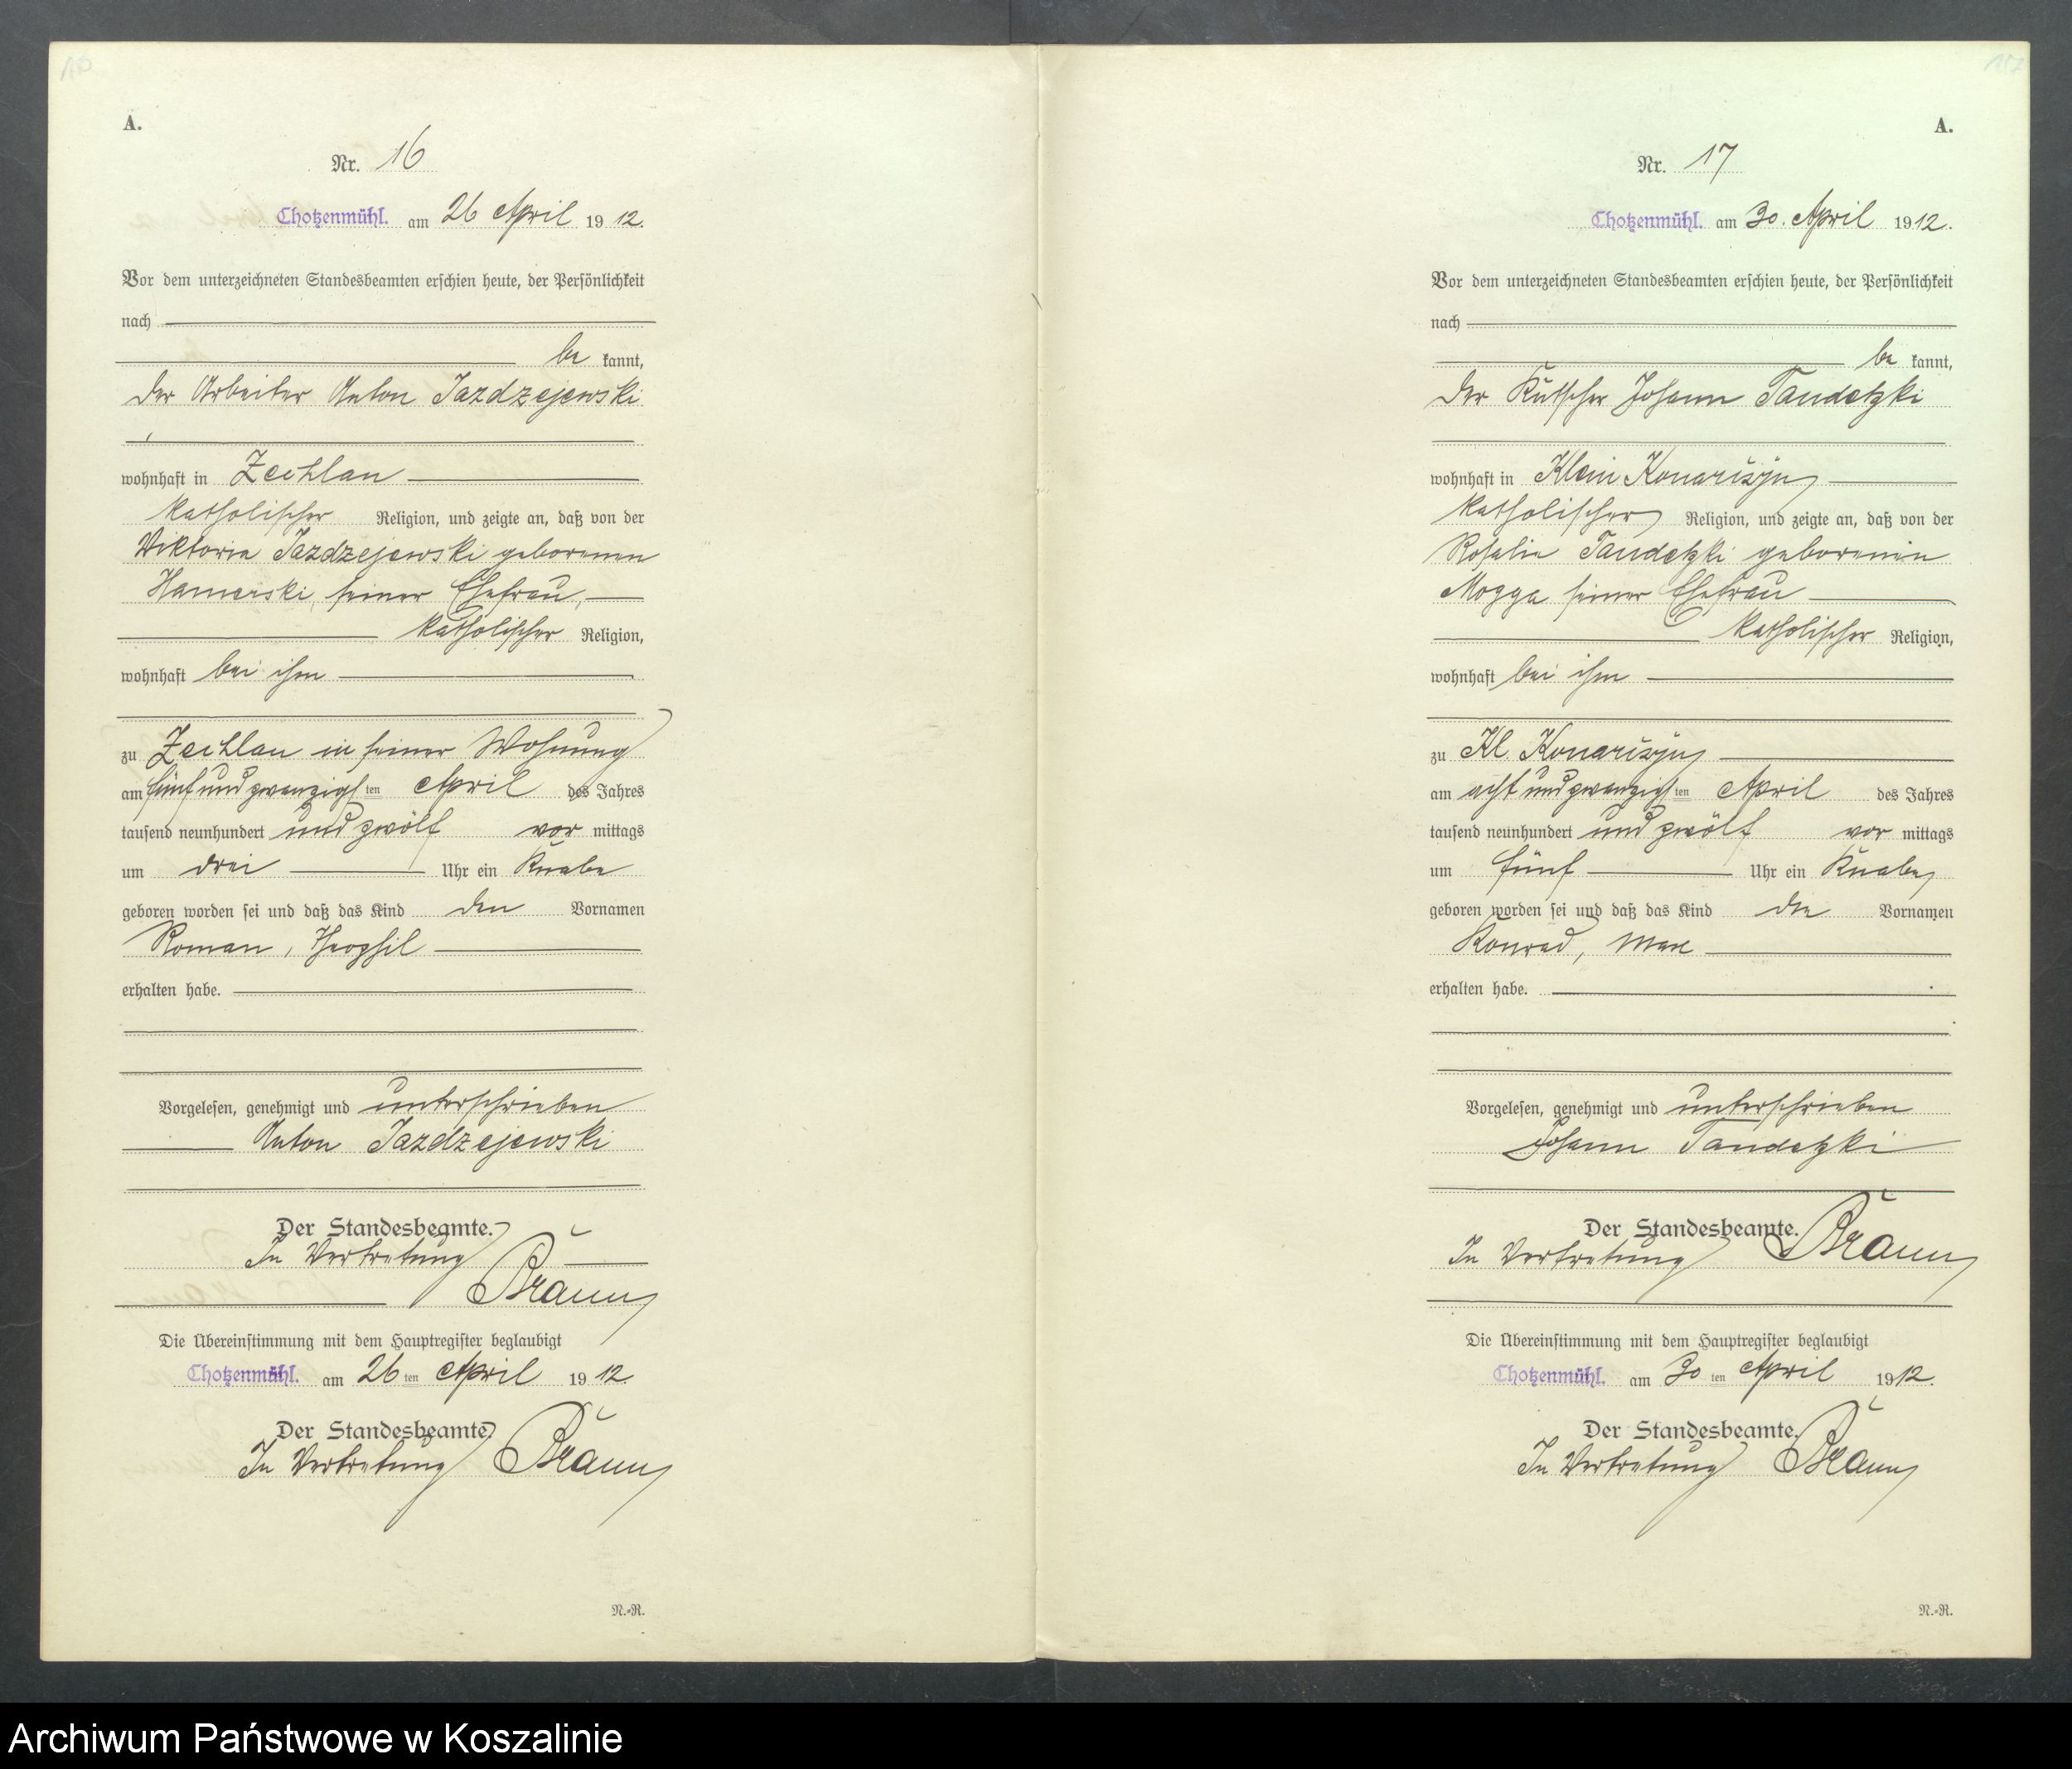 A.
Nr. 16
Chotzenmühl. am 26 April 1912.
Vor dem unterzeichneten Standesbeamten erschien heute, der Persönlichkeit
nach
be kannt,
der Arbeiter Anton Jazdzejewski
wohnhaft in Zechlau
katholischer Religion, und zeigte an, daß von der
Viktoria Jazdzejewski geborenen
Hamerski, seiner Ehefrau,
katholischer Religion,
wohnhaft bei ihm
zu Zechlau in seiner Wohnung
am fünfundzwanzigsten April des Jahres
tausend neunhundert und zwölf vor mittags
um drei Uhr ein Knabe
geboren worden sei und daß das Kind den Vornamen
Roman, Theophil
erhalten habe.
Vorgelesen, genehmigt und unterschrieben
Anton Jazdzejewski
Der Standesbeamte.
In Vertretung
Braun
Die Übereinstimmung mit dem Hauptregister beglaubigt
Chotzenmühl. am 26 ten April 1912.
Der Standesbeamte.
In Vertretung Braun
N.-R.
A.
Nr. 17
Chotzenmühl. am 30. April 1912.
Vor dem unterzeichneten Standesbeamten erschien heute, der Persönlichkeit
nach
be kannt,
der Kutscher Johann Tandetzki
wohnhaft in Klein Konarczyn
katholischer Religion, und zeigte an, daß von der
Rosalie Tandetzki geborenen
Mogga seiner Ehefrau
katholischer Religion,
wohnhaft bei ihm
zu Kl. Konarczyn
am acht und zwanzigsten April des Jahres
tausend neunhundert und zwölf vor mittags
um fünf Uhr ein Knabe
geboren worden sei und daß das Kind die Vornamen
Konrad, Max
erhalten habe.
Vorgelesen, genehmigt und unterschrieben
Johann Tandetzki
Der Standesbeamte.
In Vertretung Braun
Die Übereinstimmung mit dem Hauptregister beglaubigt
Chotzenmühl. am 30 ten April 1912.
Der Standesbeamte.
In Vertretung Braun
N.-R.
Archiwum Państwowe w Koszalinie